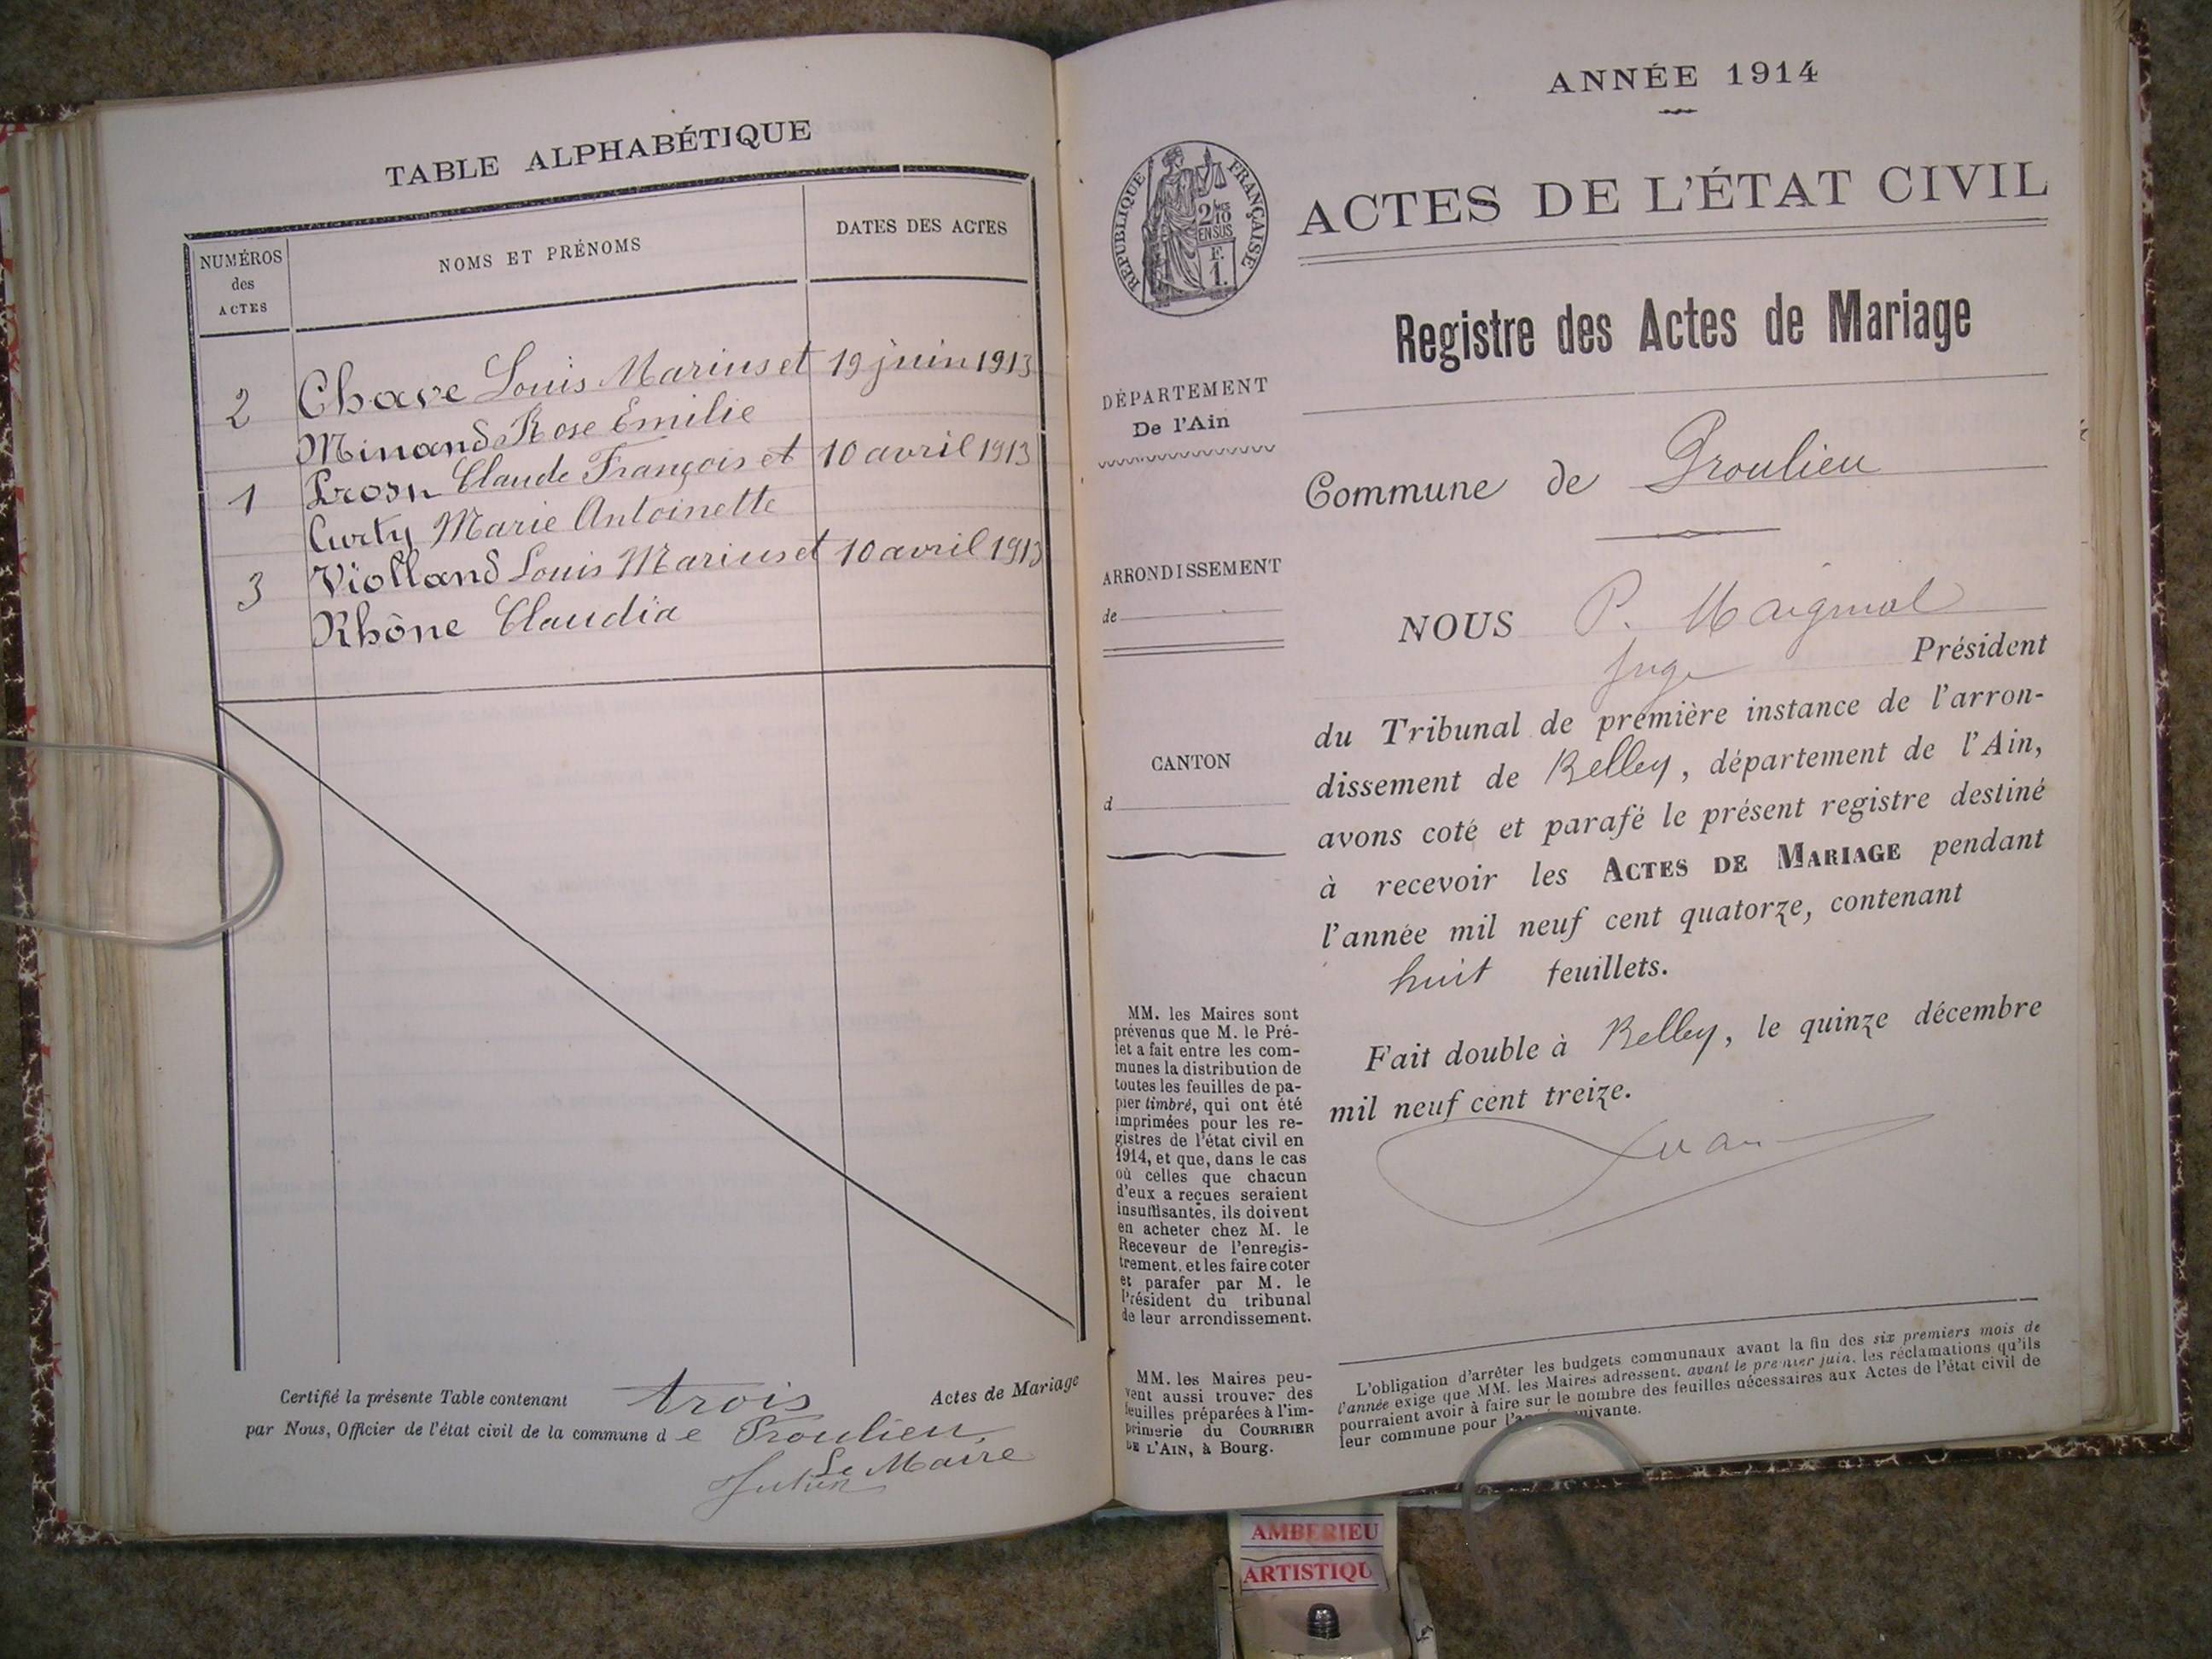 TABLE ALPHABÉTIQUE
NUMÉROS
des
ACTES
NOMS ET PRÉNOMS
DATES DES ACTES
2 Chave Louis Marius et 19 juin 1913
Minand Rose Emilie
1 Claude François et 10 avril 1913
Curty Marie Antoinette
3 Violland Louis Marius et 10 avril 1913
Rhône Claudia
Certifié la présente Table contenant trois Actes de Mariage
par Nous, Officier de l'état civil de la commune de Proulieu
Le Maire
ANNÉE 1914
RÉPUBLIQUE FRANÇAISE
2/10MES
EN SUS
F.
1.
ACTES DE L'ÉTAT CIVIL
Registre des Actes de Mariage
DÉPARTEMENT
De l'Ain
ARRONDISSEMENT
de
CANTON
d
MM. les Maires sont
prévenus que M. le Pré-
fet a fait entre les com-
munes la distribution de
toutes les feuilles de pa-
pier timbré, qui ont été
imprimées pour les re-
gistres de l'état civil en
1914, et que, dans le cas
où celles que chacun
d'eux a reçues seraient
insuffisantes, ils doivent
en acheter chez M. le
Receveur de l'enregis-
trement, et les faire coter
et parafer par M. le
Président du tribunal
de leur arrondissement.
MM. les Maires peu-
vent aussi trouver des
feuilles préparées à l'im-
primerie du COURRIER
DE L'AIN, à Bourg.
Commune de Proulieu
NOUS P. Maigniol
Juge Président
du Tribunal de première instance de l'arron-
dissement de Belley, département de l'Ain,
avons coté et parafé le présent registre destiné
à recevoir les ACTES DE MARIAGE pendant
l'année mil neuf cent quatorze, contenant
huit feuillets.
Fait double à Belley, le quinze décembre
mil neuf cent treize.
L'obligation d'arrêter les budgets communaux avant la fin des six premiers mois de
l'année exige que MM. les Maires adressent, avant le premier juin, les réclamations qu'ils
pourraient avoir à faire sur le nombre des feuilles nécessaires aux Actes de l'état civil de
leur commune pour l'année suivante.
AMBERIEU
ARTISTIQU